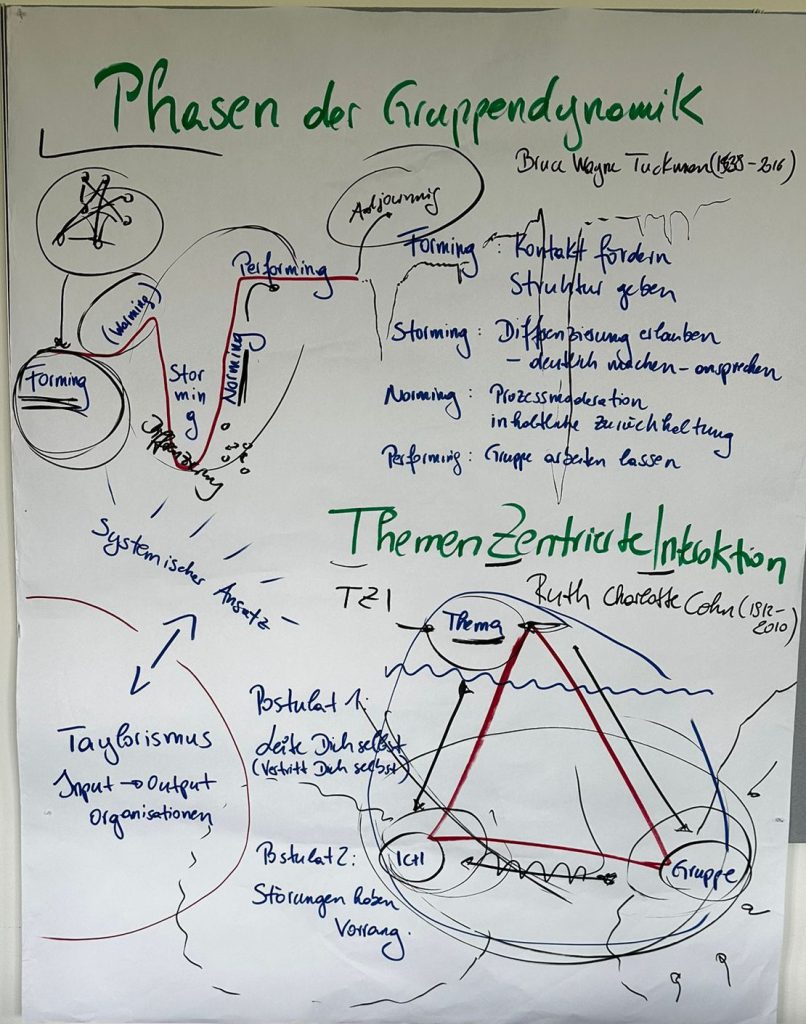 Phasen der Gruppendynamik
Bruce Wayne Tuckman (1938-2016)
Adjourning
Performing
(Warming)
Forming
Storming
Norming
Differenzierung
Forming: Kontakt fördern
Struktur geben
Storming: Differenzierung erlauben
- deutlich machen - ansprechen
Norming: Prozessmoderation
inhaltliche Zurückhaltung
Performing: Gruppe arbeiten lassen
Systemischer Ansatz
Taylorismus
Input → Output
Organisationen
ThemenZentrierte Interaktion
TZI
Ruth Charlotte Cohn (1912-
2010)
Thema
Postulat 1:
Leite Dich selbst
(Vertritt Dich selbst)
Postulat 2:
Störungen haben
Vorrang.
ICH
Gruppe